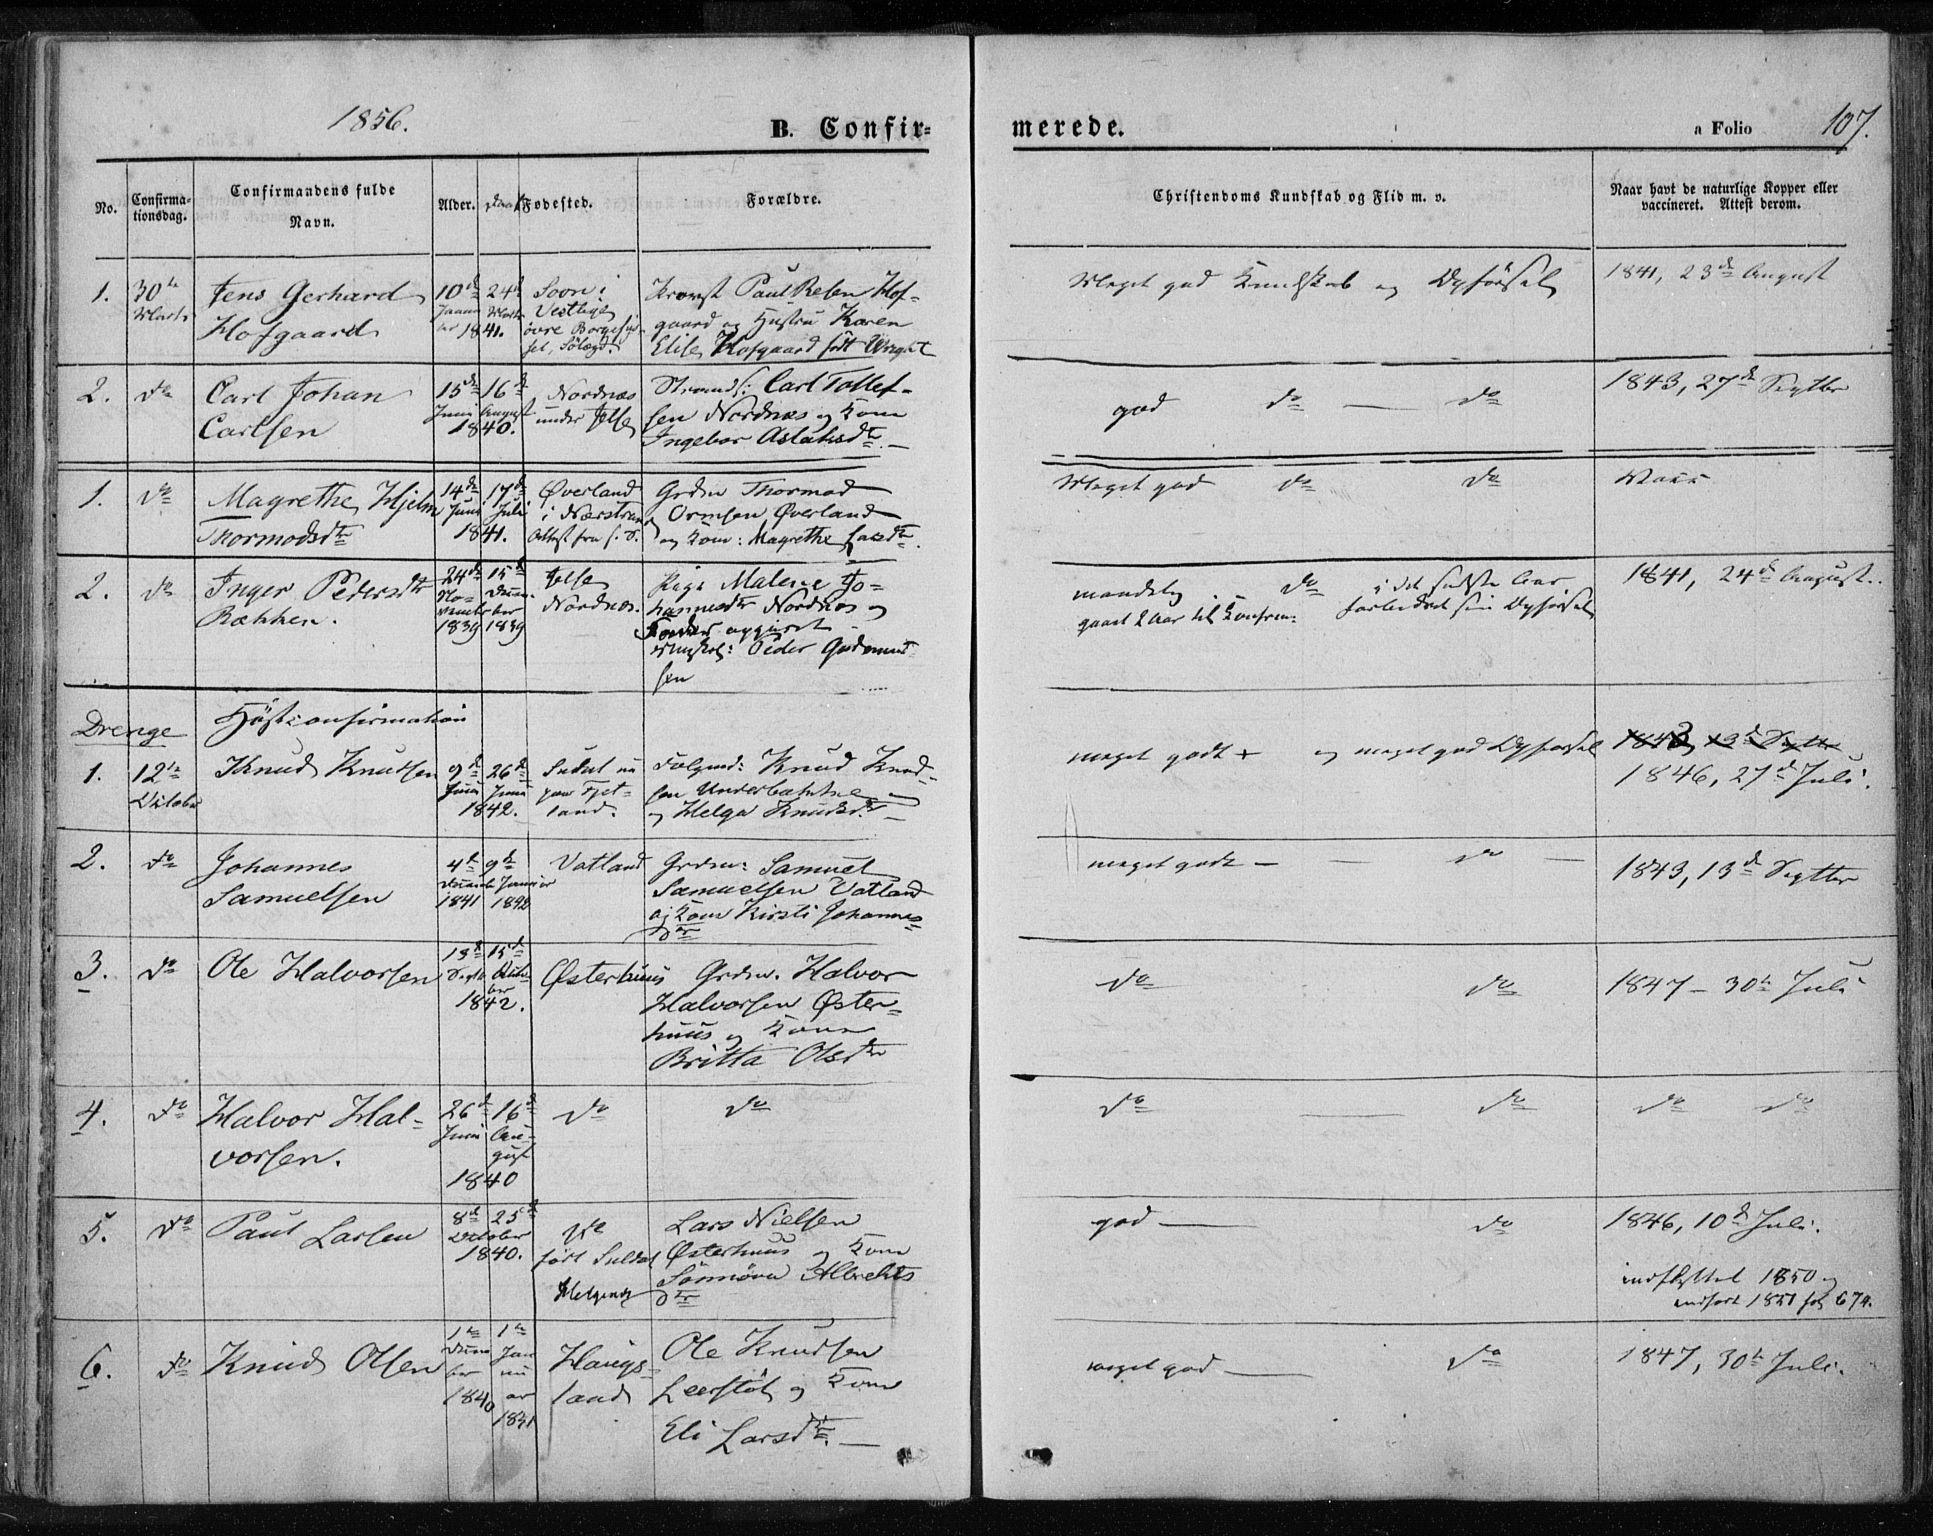 1856.
B. Confir=
merede.
a Folio 107.
No.
Confirma-
tionsdag.
Confirmandens fulde
Navn.
Alder.
Daab
Fødested.
Forældre.
Christendoms Kundskab og Flid m. v.
Naar havt de naturlige Kopper eller
vaccineret. Attest derom.
1. 30te Marts
Jens Gerhard
Hofgaard
10de Januar 24de Marts
1841.
Soon i
Vestbye
øvre Borgesys-
sel,
Paul Resen Hof-
gaard og Hustru Karen
Elise Hofgaard født Wright
Meget god Kundskab og Opførsel
1841, 23de August
2. do
Carl Johan
Carlsen
15de Juni 16de August
1840.
Nordnæs
under Jelse
Strands: Carl Tollef-
sen Nordnæs og Kone
Ingebor Aslaksdtr. —
god do — do
1843, 27de Septbr
1. do
Magrethe Hjelm
Thormodsdtr
14de Juni 17de Juli
1841.
Øverland
i Nærstrand
Attest fra S. P.
Grdm Thormod
Ormsen Øverland
og Kone: Magrethe Larsdtr.
Meget god do do
2. do
Inger Pedersdtr
Bakken.
24de November 15de December
1839 1839
Jelse
Nordnæs.
Pige Malene Jo-
hannesdtr Nordnæs og
Fader opgivet
Ungkrl: Peder Gudmund-
sen
maadelig do i det sidste Aar
gaaet 2 Aar til Konfirm: forbedret sin Opførsel
1841, 24de August.
Drenge Høstconfirmation
1. 12te October
Knud Knudsen
9de Juni 26de Juni
1842.
Suldal nu
paa Tjet-
land.
Følgmd: Knud Knud-
sen Underbakke
og Helga Knudsdtr —
meget godt + og meget god Opførsel
1843, 13de Septbr
1846, 27de Juli.
2. do
Johannes
Samuelsen
4de Decemb 9de Januar
1841 1842
Vatland
Grdm: Samuel
Samuelsen Vatland
og Kone Kirsti Johannes-
dtr
meget godt — — do —
1843, 13de Septbr
3. do
Ole Halvorsen
13de Septb 15de Octo-
ber
1842.
Østerhuus
Grdm. Halvor
Halvorsen Øster-
huus og Kone
Britta Olsdtr
do do
1847 — 30te Juli
4. do
Halvor Hal-
vorsen.
26de Juni 16de Au-
gust
1840
do
do
do do
do do
5. do
Paul Larsen
8de 25de
October
1840.
født Suldal
Helgenes
Lars Nielsen
Østerhuus og Kone
Sønnøva Albrekts
dtr
god — do
1846, 10de Juli.
indflyttet 1850 og
indført 1851 fol 674.
6. do
Knud Olsen
1te Decem
ber 1840
1te Jan
nu
ar
1841
Haugs-
land
Ole Knudsen
Leerstøl og Kone
Eli Larsdtr. —
meget god — do
1847, 30te Juli.